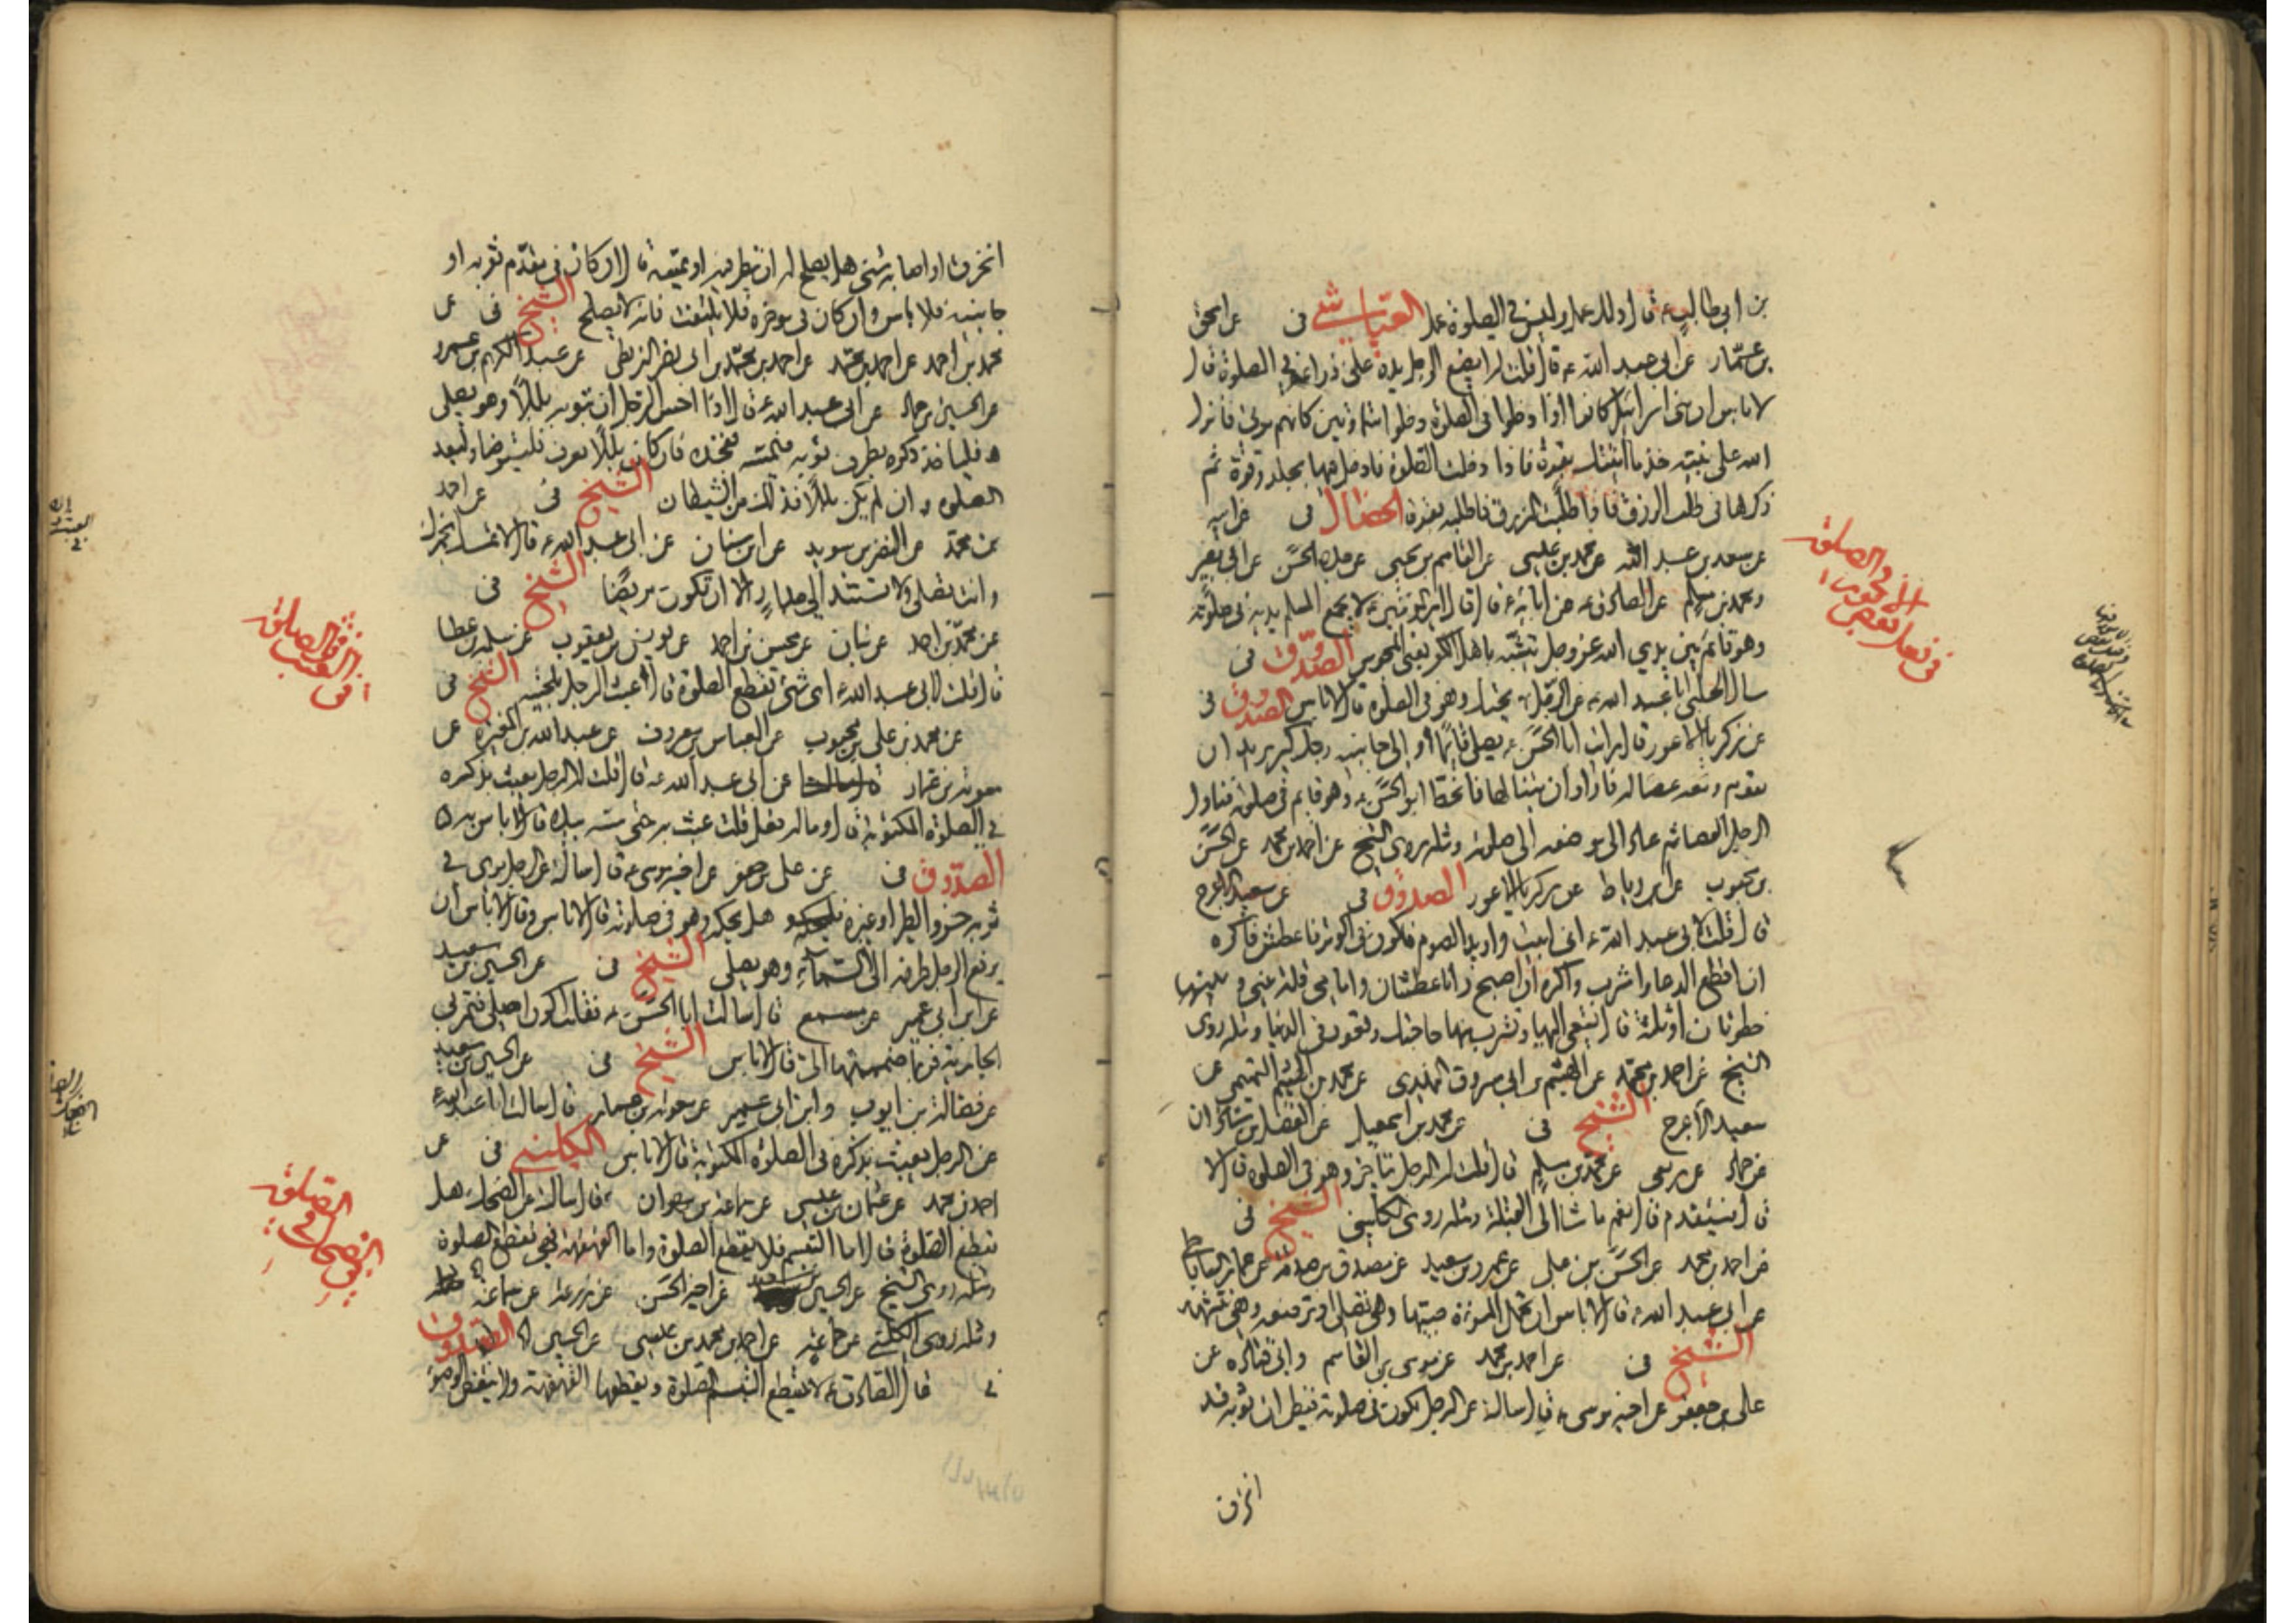 بن ابي طالب ع قال ذلك عمل وليس في الصلوة عمل العيّاشي في عن اسحق
بن عمّار عن ابي عبد الله ع قال قلت له ايضع الرجل يده على ذراعه في الصلوة قال
لا باس ان بني اسرائيل كانوا اذا دخلوا في الصلوة دخلوا متماوتين كانهم موتى فانزل
الله على نبيّه خذ ما اتيتك بقوة فاذا دخلت الصلوة فادخل فيها بجلد وقوة ثم
ذكرها في طلب الرزق فاذا طلبت الرزق فاطلبه بقوة الخصال في عن ابيه
عن سعد بن عبد الله عن محمد بن عيسى عن القاسم بن يحيى عن جده الحسن عن ابي بصير
ومحمد بن مسلم عن الصادق ع عن ابائه ع قال قال امير المؤمنين ع لا يجمع المسلم يديه في صلوته
وهو قائم بين يدي الله عز وجل يتشبّه باهل الكفر يعني المجوس الصدوق في
سال الحلبي ابا عبد الله ع عن الرجل يحتك وهو في الصلوة قال لا باس الصدوق في
عن زكريا الاعور قال رايت ابا الحسن ع يصلي قائما والى جانبه رجل كبير يريد ان
يقوم ومعه عصا له فاراد ان يتناولها فانحط ابو الحسن ع وهو قائم في صلوته فناول
الرجل العصا ثم عاد الى موضعه الى صلوته ومثله روى الشيخ عن احمد بن محمد عن الحسن
بن محبوب عن ابن رباط عن زكريا الاعور الصدوق في عن سعيد الاعرج
قال قلت لابي عبد الله ع اني ابيت واريد الصوم فاكون في الوتر فاعطش فاكره
ان اقطع الدعاء واشرب واكره ان اصبح وانا عطشان وامامي قلة بيني وبينها
خطوتان او ثلثة قال تسعى اليها وتشرب منها حاجتك وتعود في الدعا ومثله روى
الشيخ عن احمد بن محمد عن الهيثم بن ابي مسروق النهدي عن محمد بن الهيثم التميمي عن
سعيد الاعرج الشيخ في عن محمد بن اسمعيل عن الفضل بن شاذان
عن حماد عن ربعي عن محمد بن مسلم قال قلت له الرجل يتاخر وهو في الصلوة قال لا
قال فيتقدم قال نعم ما شاء الى القبلة ومثله روى الكليني الشيخ في
عن احمد بن محمد عن الحسن بن علي عن عمرو بن سعيد عن مصدق بن صدقة عن عمار الساباطي
عن ابي عبد الله ع قال لا باس ان تحمل المرءة صبيّها وهي تصلي او ترضعه وهي تتشهد
الشيخ في عن احمد بن محمد عن موسى بن القاسم وابي قتادة عن
علي بن جعفر عن اخيه موسى ع قال سالته عن الرجل يكون في صلوته فيظن ان ثوبه قد
انخرق
في الصلوة
انخرق او اصابه شي هل يصلح له ان ينظر فيه او يفتشه قال ان كان في مقدّم ثوبه او
جانبيه فلا باس وان كان في موخره فلا يلتفت فانه لا يصلح الشيخ في عن
محمد بن احمد عن احمد بن محمد عن احمد بن محمد بن ابي نصر البزنطي عن عبد الكريم بن عمرو
عن الحسين بن حماد عن ابي عبد الله ع قال اذا احس الرجل ان بثوبه بللًا وهو يصلي
فلياخذ ذكره بطرف ثوبه فليمسه بفخذه فان كان بللًا يعرف فليتوضا وليعد
الصلوة وان لم يكن بللًا فذلك من الشيطان الشيخ في عن احمد
بن محمد عن النضر بن سويد عن ابن سنان عن ابي عبد الله ع قال لا تمسك بخمرك
وانت تصلي ولا تستند الى جدار الا ان تكون مريضا الشيخ في
عن محمد بن احمد عن بنان عن محسن بن احمد عن يونس بن يعقوب عن سلمة بن عطا
قال قلت لابي عبد الله ع اي شي يقطع الصلوة قال عبث الرجل بلحيته الشيخ في
عن محمد بن علي بن محبوب عن العباس بن معروف عن عبد الله بن المغيرة عن
معوية بن عمار عن ابي عبد الله ع قال قلت له الرجل يعبث بذكره
في الصلوة المكتوبة قال وما له فعل قلت عبث به حتى مسه بيده قال لا باس به
الصدوق في عن علي بن جعفر عن اخيه موسى ع قال سالته عن الرجل يرى في
ثوبه خرو الطير او غيره هل يحكه وهو في صلوته قال لا باس وقال لا باس ان
يرفع الرجل طرفه الى السماء وهو يصلي الشيخ في عن الحسين بن سعيد
عن ابن ابي عمير عن مسمع قال سالت ابا الحسن ع فقلت اكون اصلي فتمر بي
الجارية فربما ضممتها الي قال لا باس الشيخ في عن الحسين بن سعيد
عن فضالة بن ايوب وابن ابي عمير عن معوية بن عمار قال سالت ابا عبد الله ع
عن الرجل يعبث بذكره في الصلوة المكتوبة قال لا باس الكليني في عن
احمد بن محمد عن عثمان بن عيسى عن سماعة بن مهران قال سالته عن الضحك هل
يقطع الصلوة قال اما التبسم فلا يقطع الصلوة واما القهقهة فهي تقطع الصلوة
ومثله روى الشيخ عن الحسين بن سعيد عن اخيه الحسن عن زرعة عن سماعة
ومثله روى الكليني عن جماعة عن احمد بن محمد بن عيسى عن الحسين الصدوق
في قال الصادق ع لا يقطع التبسم الصلوة ويقطعها القهقهة ولا ينقض الوضوء
في الصلوة
الضحك في
الصلوة